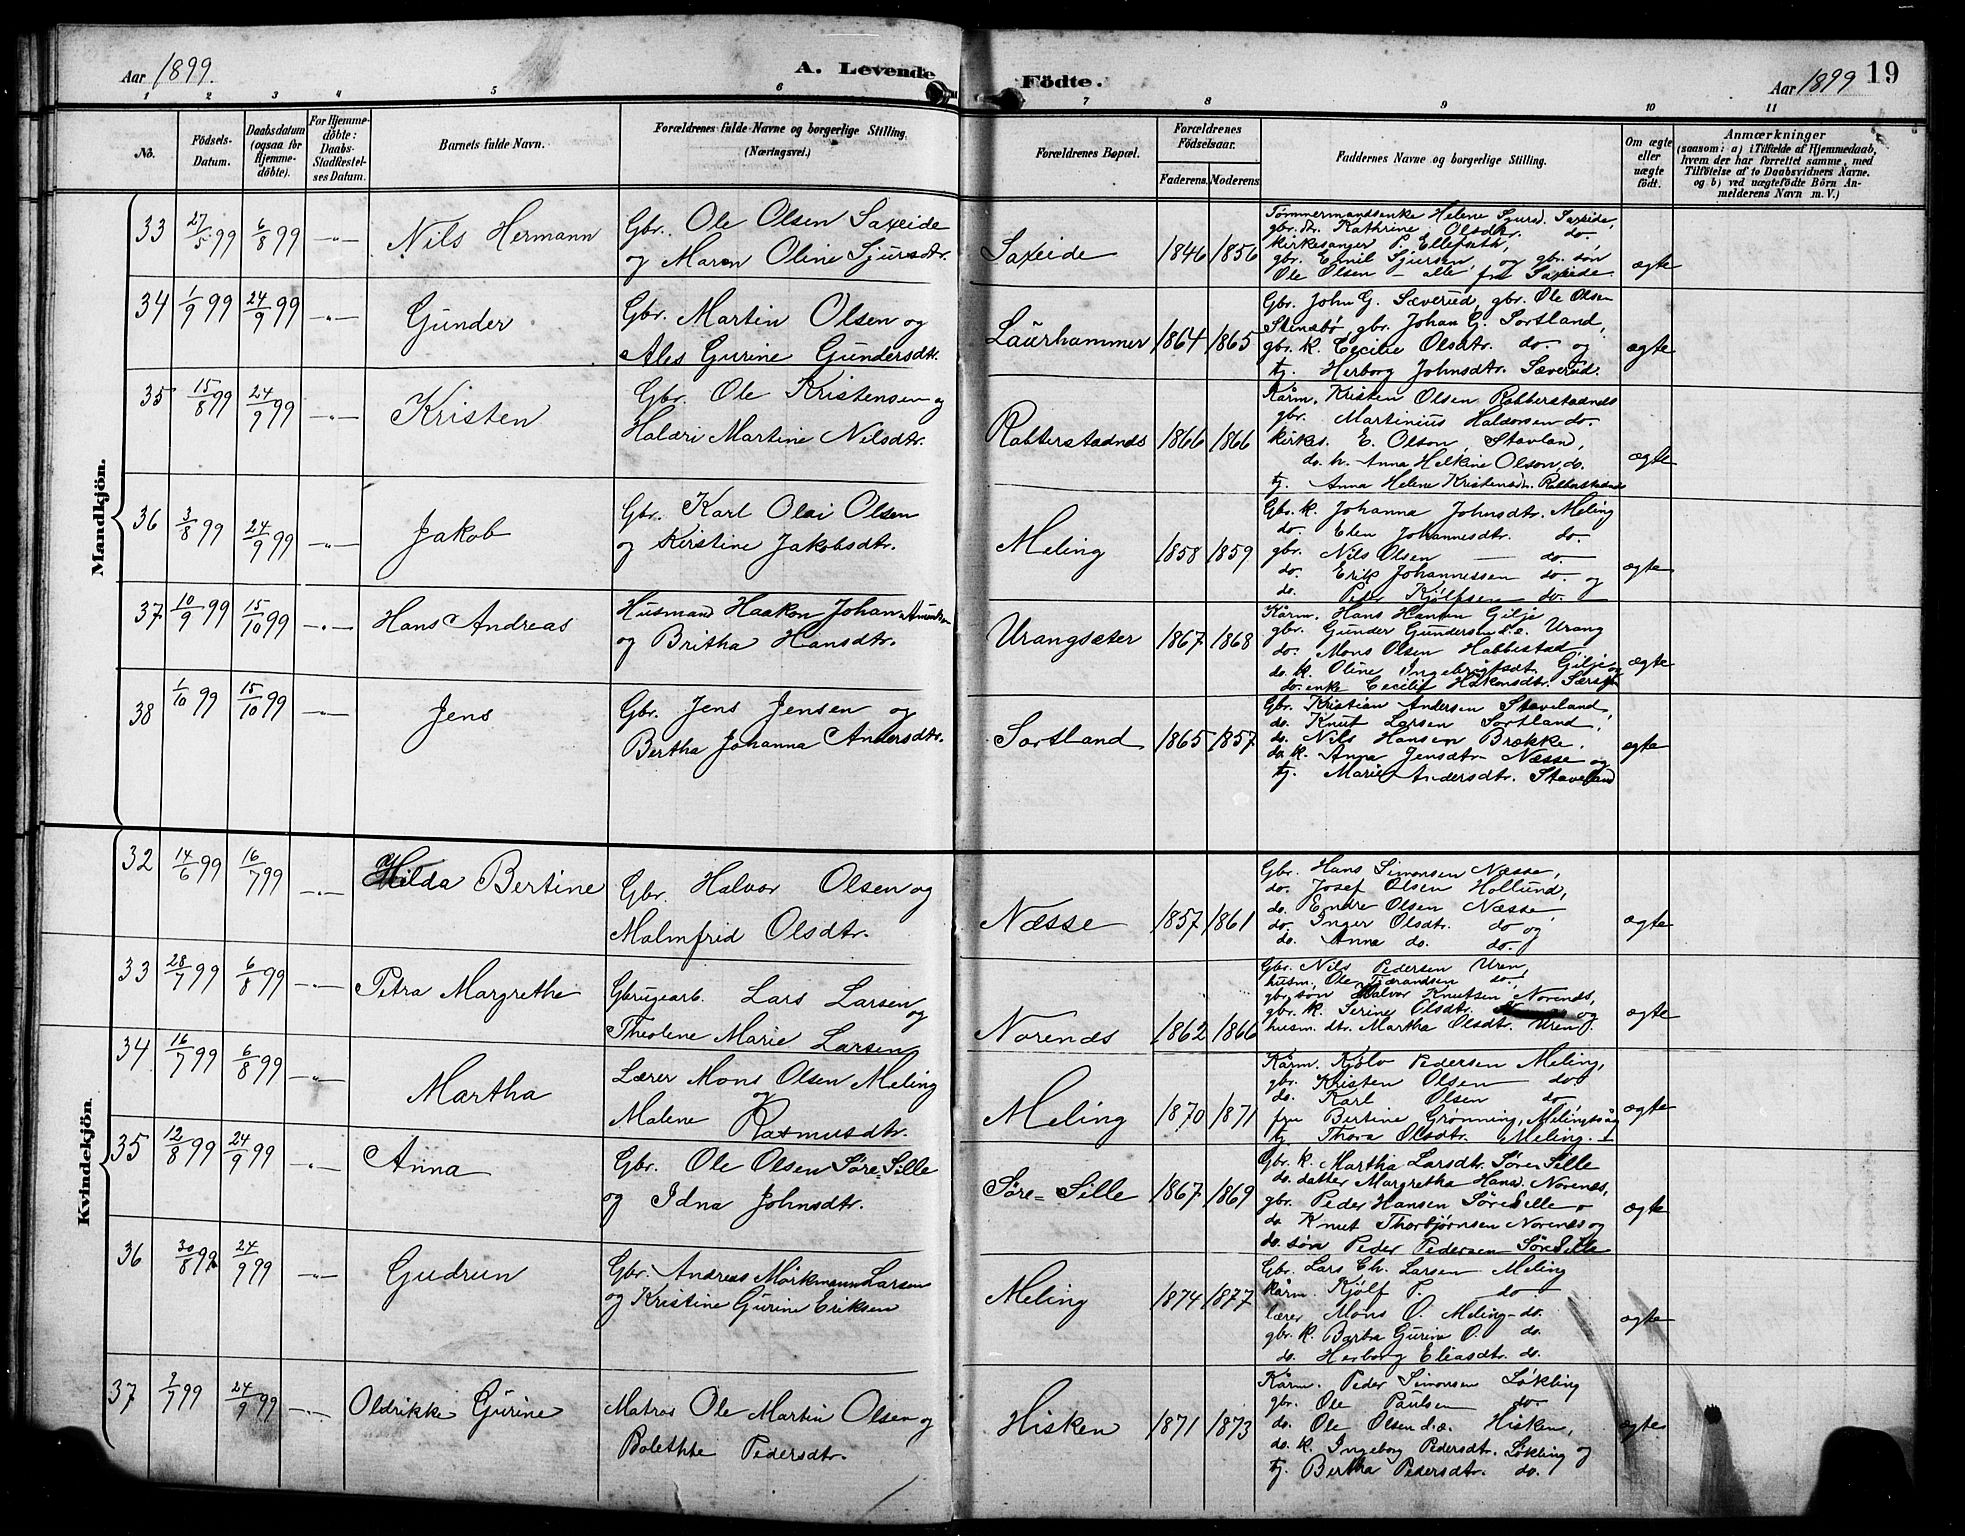 Aar 1899. A. Levende Födte. Aar 1899 19
1 2 3 4 5 6 7 8 9 10 11
No. Födsels-Datum. Daabsdatum (ogsaa for Hjemme-döbte). For Hjemme-döbte: Daabs-Stadfestel-ses Datum. Barnets fulde Navn. Forældrenes fulde Navne og borgerlige Stilling. (Næringsvei.) Forældrenes Bopæl. Forældrenes Födselsaar. Faderens. Moderens. Faddernes Navne og borgerlige Stilling. Om ægte eller uægte födt. Anmærkninger (saasom: a) i Tilfælde af Hjemmedaab, hvem der har forrettet samme, med Tilföielse af to Daabsvidners Navne. og b) ved uægtefödte Börn An-melderens Navn m. V.)
Mandkjön.
33 27/5 99 6/8 99 —"— Nils Hermann
Gbr. Ole Olsen Saxeide
og Maren Oline Sjursdtr.
Saxeide 1846 1856
Tømmermandsenke Helene Sjursd. Saxeide,
gbr. dr. Kathrine Olsdtr. do.
Kirkesanger P. Ellefseth,
gbr. Emil Sjursen, og gbr. søn
Ole Olsen — alle fra Saxeide
ægte
34 1/9 99 24/9 99 —"— Gunder
Gbr. Martin Olsen og
Ales Gurine Gundersdtr.
Laurhammer 1864 1865
Gbr. John G. Sæverud, gbr. Ole Olsen
Stensbø, gbr. Johan G. Sortland,
gbr. k. Cecilie Olsdtr. do. og
tj. Herborg Johnsdtr. Sæverud.
ægte
35 15/8 99 24/9 99 —"— Kristen
Gbr. Ole Kristensen og
Haldri Martine Nilsdtr.
Rabberstadnes 1866 1866
Kårm. Kristen Olsen Rabberstadnes
gbr. Martinius Haldorsen do.
kirkes. E. Olson, Stavland,
do. h. Anna Helkine Olson, do.
tj. Anna Helene Kristensd. Rabberstadnes
ægte
36 3/8 99 24/9 99 —"— Jakob
Gbr. Karl Olai Olsen
og Kirstine Jakobsdtr.
Meling 1858 1859
Gbr. k. Johanna Johnsdtr. Meling
do. Elen Johannesdtr. do.
gbr. Nils Olsen — do.
do. Erik Johannessen do. og
do. Peder Kjölfsen do.
ægte
37 10/9 99 15/10 99 —"— Hans Andreas
Husmand Haakon Johan Amundsen
og Britha Hansdtr.
Urangsæter 1867 1868
Kårm. Hans Hansen Gilje
gbr. Gunder Gundersen d.e. Urang
do. Mons Olsen Habbestad
do. k. Oline Ingebrigtsdt. Gilje og
do. enke Cecilie Håkonsdtr.
ægte
38 1/10 99 15/10 99 —"— Jens
Gbr. Jens Jensen og
Bertha Johanna Andersdtr.
Sortland 1865 1857
Gbr. Kristian Andersen Staveland,
do. Knut Larsen Sortland,
do. Nils Hansen Brække,
do. k. Anna Jensdtr. Næsse og
tj. Marie Andersdtr. Staveland
ægte
Kvindekjön.
32 14/6 99 16/7 99 —"— Hilda Bertine
Gbr. Halvor Olsen og
Malmfrid Olsdtr.
Næsse 1857 1861
Gbr. Hans Simonsen Næsse,
do. Josef Olsen Hollund,
do. Endre Olsen Næsse,
do. Inger Olsdtr. do og
do. Anna do. do.
ægte
33 28/7 99 6/8 99 —"— Petra Margrethe
Gbrugearb. Lars Larsen og
Theoline Marie Larsen
Norenes 1862 1866
Gbr. Nils Pedersen Uren,
husm. Ole Tjerandsen do.
gbr. søn Halvor Knutsen Norenes,
gbr. k. Serine Olsdtr. og
husm. dtr. Martha Olsdtr. Uren.
ægte
34 16/7 99 6/8 99 —"— Martha
Lærer Mons Olsen Meling
og
Malene Rasmusdtr.
Meling 1870 1871
Kårm. Kjölv Pedersen Meling,
gbr. Kristen Olsen do
do. Karl Olsen do
fru Bertine Grønning, Melingvåg
tj. Thora Olsdtr. Meling.
ægte
35 12/8 99 24/9 99 —"— Anna
Gbr. Ole Olsen Søre-Sille
og Idna Johnsdtr.
Søre-Sille 1867 1869
Gbr. k. Martha Larsdtr. Søre Sille
do. datter Margretha Hansd. Norenes,
gbr. Peder Hansen Søre Sille
do. Knut Thorbjørnsen Norenes og
do. søn Peder Pedersen Søre Sille
ægte
36 30/8 99 24/9 99 —"— Gudrun
Gbr. Andreas Mörkmann Larsen
og Kristine Gurine Eriksen
Meling 1874 1877
Gbr. Lars Ch. Larsen Meling
kårm. Kjölf P. do
lærer Mons O. Meling do.
gbr. k. Barbra Gurine O. do.
do. Herborg Eliasdtr. do.
ægte
37 2/7 99 24/9 99 —"— Oldrikke Gurine
Matros Ole Martin Olsen og
Bolethe Pedersdtr.
Hisken 1871 1873
Kårm. Peder Simonsen Løkling
gbr. Ole Paulsen do
do. Ole Olsen d.æ. Hisken,
do. k. Ingeborg Pedersdtr. Løkling og
tj. Bertha Pedersdtr. do.
ægte